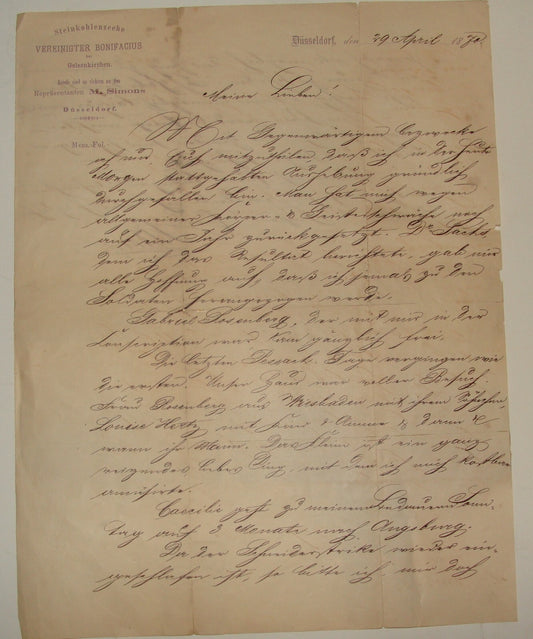 Steinkohlenzeche
VEREINIGTER BONIFACIUS
bei
Gelsenkirchen.
Briefe sind zu richten an den
Repräsentanten M. Simons
in
Düsseldorf.
Mein. Fol.
Düsseldorf, den 29 April 1872.
Meine Lieben!
Mit Gegenwärtigem bezwecke
ich nur Euch mitzutheilen daß ich in der heute
Morgen stattgehabten Aushebung gründlich
durchgefallen bin. Man hat mich wegen
allgemeiner Körper- & Geistesschwäche noch
auf ein Jahr zurückgesetzt. Dr Sachs
dem ich das Resultat berichtete, gab mir
alle Hoffnung auf, daß ich jemals zu den
Soldaten herangezogen werde.
Gabriel Rosenberg, der mit mir in der
Conscription war kam gänzlich frei.
Die letzten Pessach-Tage vergingen wie
die ersten. Unser Haus war voller Besuch.
Frau Rosenberg aus Wiesbaden mit ihrem
Louise Hertz mit Kind & Amme & dann &
wann ihr Mann. Das Kleine ist ein ganz
reizendes liebes Ding, mit dem ich mich
amüsirte.
Caecilie geht zu meinem Bedauern Sonn-
tag auf 3 Monate nach Augsburg.
Da der Schneiderstrike wieder ein-
geschlafen ist, so bitte ich mir doch